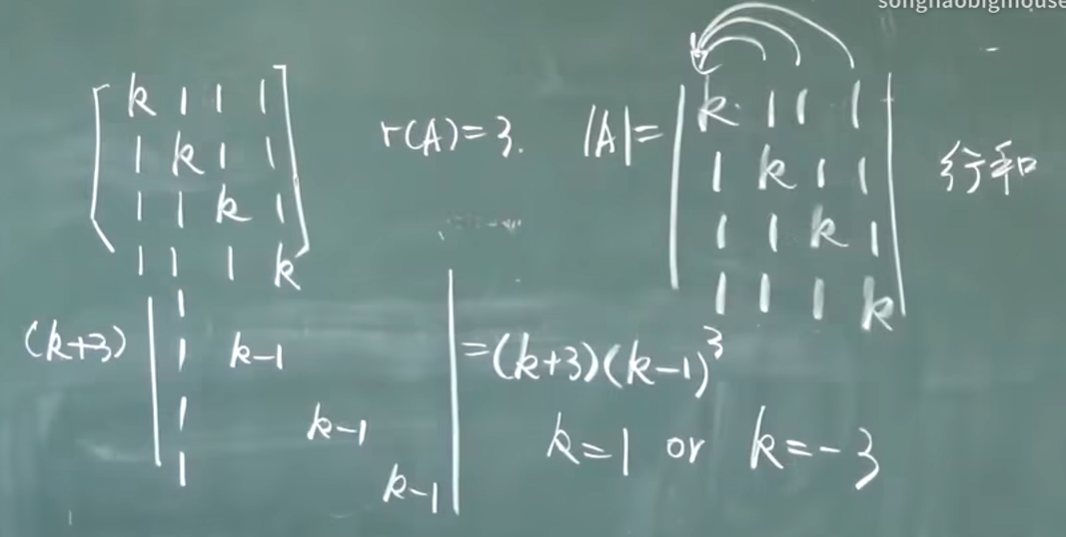 songhaobigmouse
[k 1 1 1
1 k 1 1
1 1 k 1
1 1 1 k]
r(A)=3.
|A|=
|k 1 1 1|
|1 k 1 1|
|1 1 k 1|
|1 1 1 k|
行和
(k+3)
|1
1 k-1
1 k-1
1 k-1|
=(k+3)(k-1)³
k=1 or k=-3